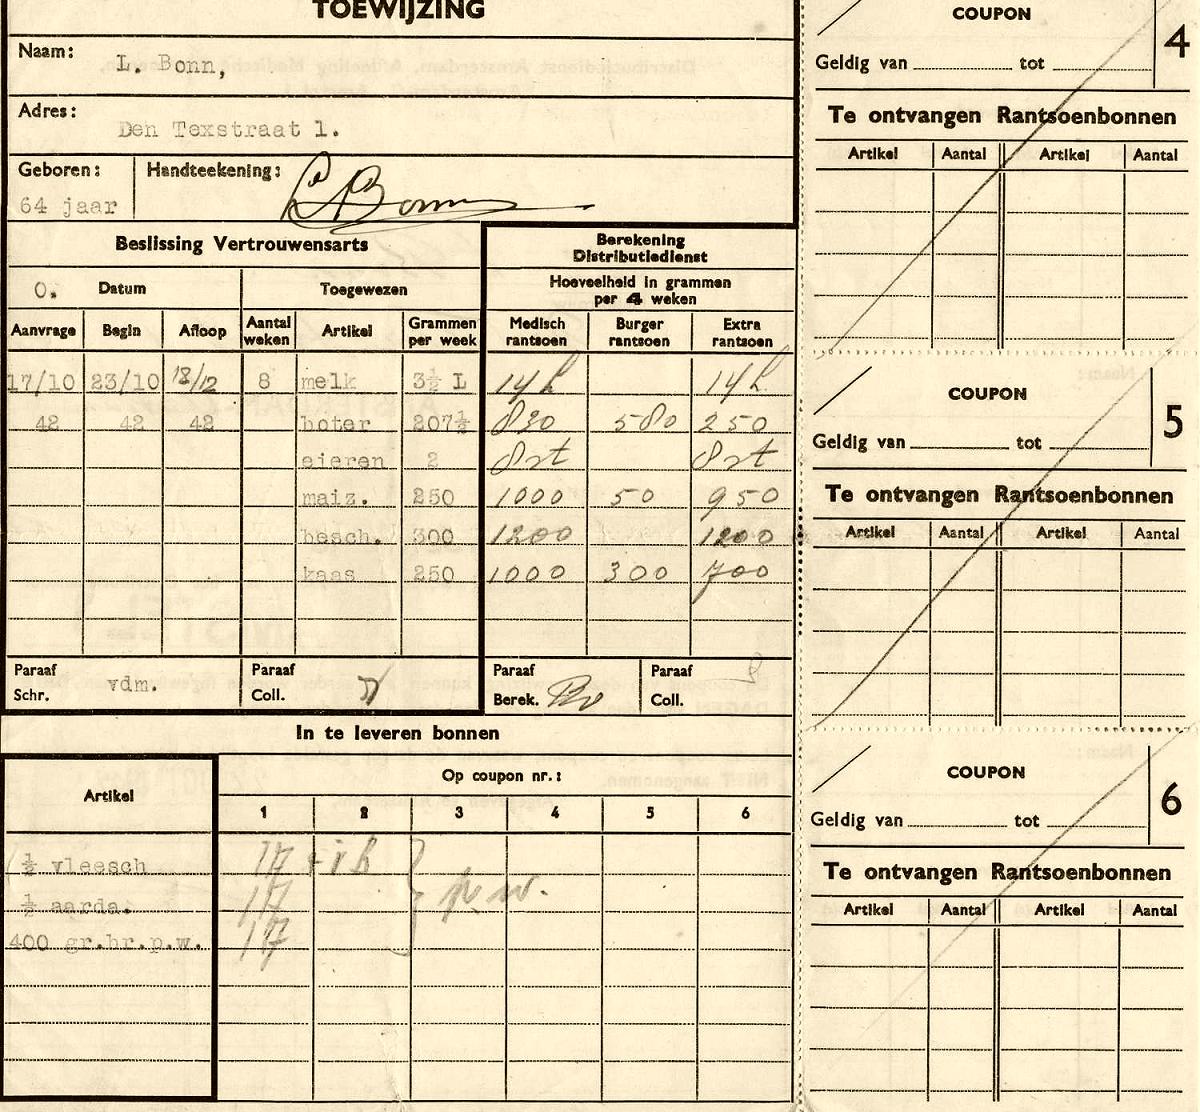 TOEWIJZING
Naam: L. Bonn,
Adres: Den Texstraat 1.
Geboren: 64 jaar Handteekening: LBonn
Beslissing Vertrouwensarts
Berekening Distributiedienst
O. Datum Toegewezen
Hoeveelheid in grammen per 4 weken
Aanvrage Begin Afloop Aantal weken Artikel Grammen per week Medisch rantsoen Burger rantsoen Extra rantsoen
17/10 23/10 18/12 8 melk 3½ L 14 L 14 L
42 42 42 boter 207½ 830 580 250
eieren 2 8 st 8 st
maiz. 250 1000 50 950
besch. 300 1200 1200
kaas 250 1000 300 700
Paraaf Schr. vdm. Paraaf Coll. Paraaf Berek. Paraaf Coll.
In te leveren bonnen
Artikel Op coupon nr.:
1 2 3 4 5 6
½ vleesch 17
½ aarda. 17 p.w.
400 gr.br.p.w. 17
COUPON 4
Geldig van tot
Te ontvangen Rantsoenbonnen
Artikel Aantal Artikel Aantal
COUPON 5
Geldig van tot
Te ontvangen Rantsoenbonnen
Artikel Aantal Artikel Aantal
COUPON 6
Geldig van tot
Te ontvangen Rantsoenbonnen
Artikel Aantal Artikel Aantal